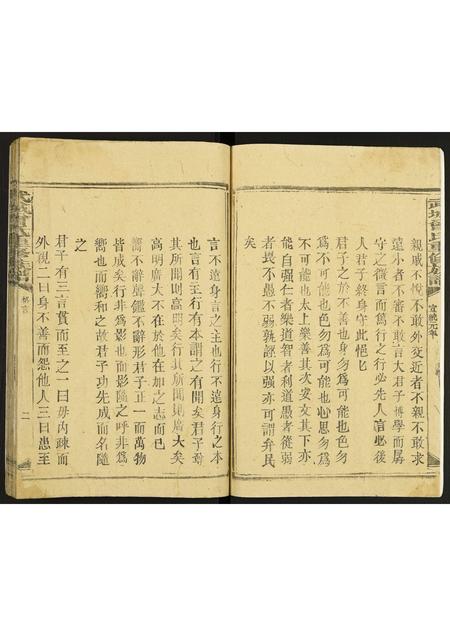 武城曾氏重修族譜
宣統元年
親戚不悅不敢外交近者不親不敢求
遠小者不審不敢言大君子博學而孱
守之微言而篤行之行必先人言必後
人君子終身守此悒悒
君子之於不善也身勿為可能也色勿
為不可能也色勿為可能也心思勿為
不可能也太上樂善其次安之其下亦
能自强仁者樂道智者利道愚者從弱
者畏不愚不弱執誣以强亦可謂弃民
矣
言不遠身言之主也行不遠身行之本
也言有主行有本謂之有聞矣君子尊
其所聞則高明矣行其所聞則廣大矣
高明廣大不在於他在加之志而已
嚮不辭聲鑑不辭形君子正一而萬物
皆成矣行非為影也而影隨之呼非為
嚮也而嚮和之故君子功先成而名隨
之
君子有三言貫而至之一曰毋內疎而
外視二曰身不善而怨他人三曰患至
武城曾氏重修族譜
二